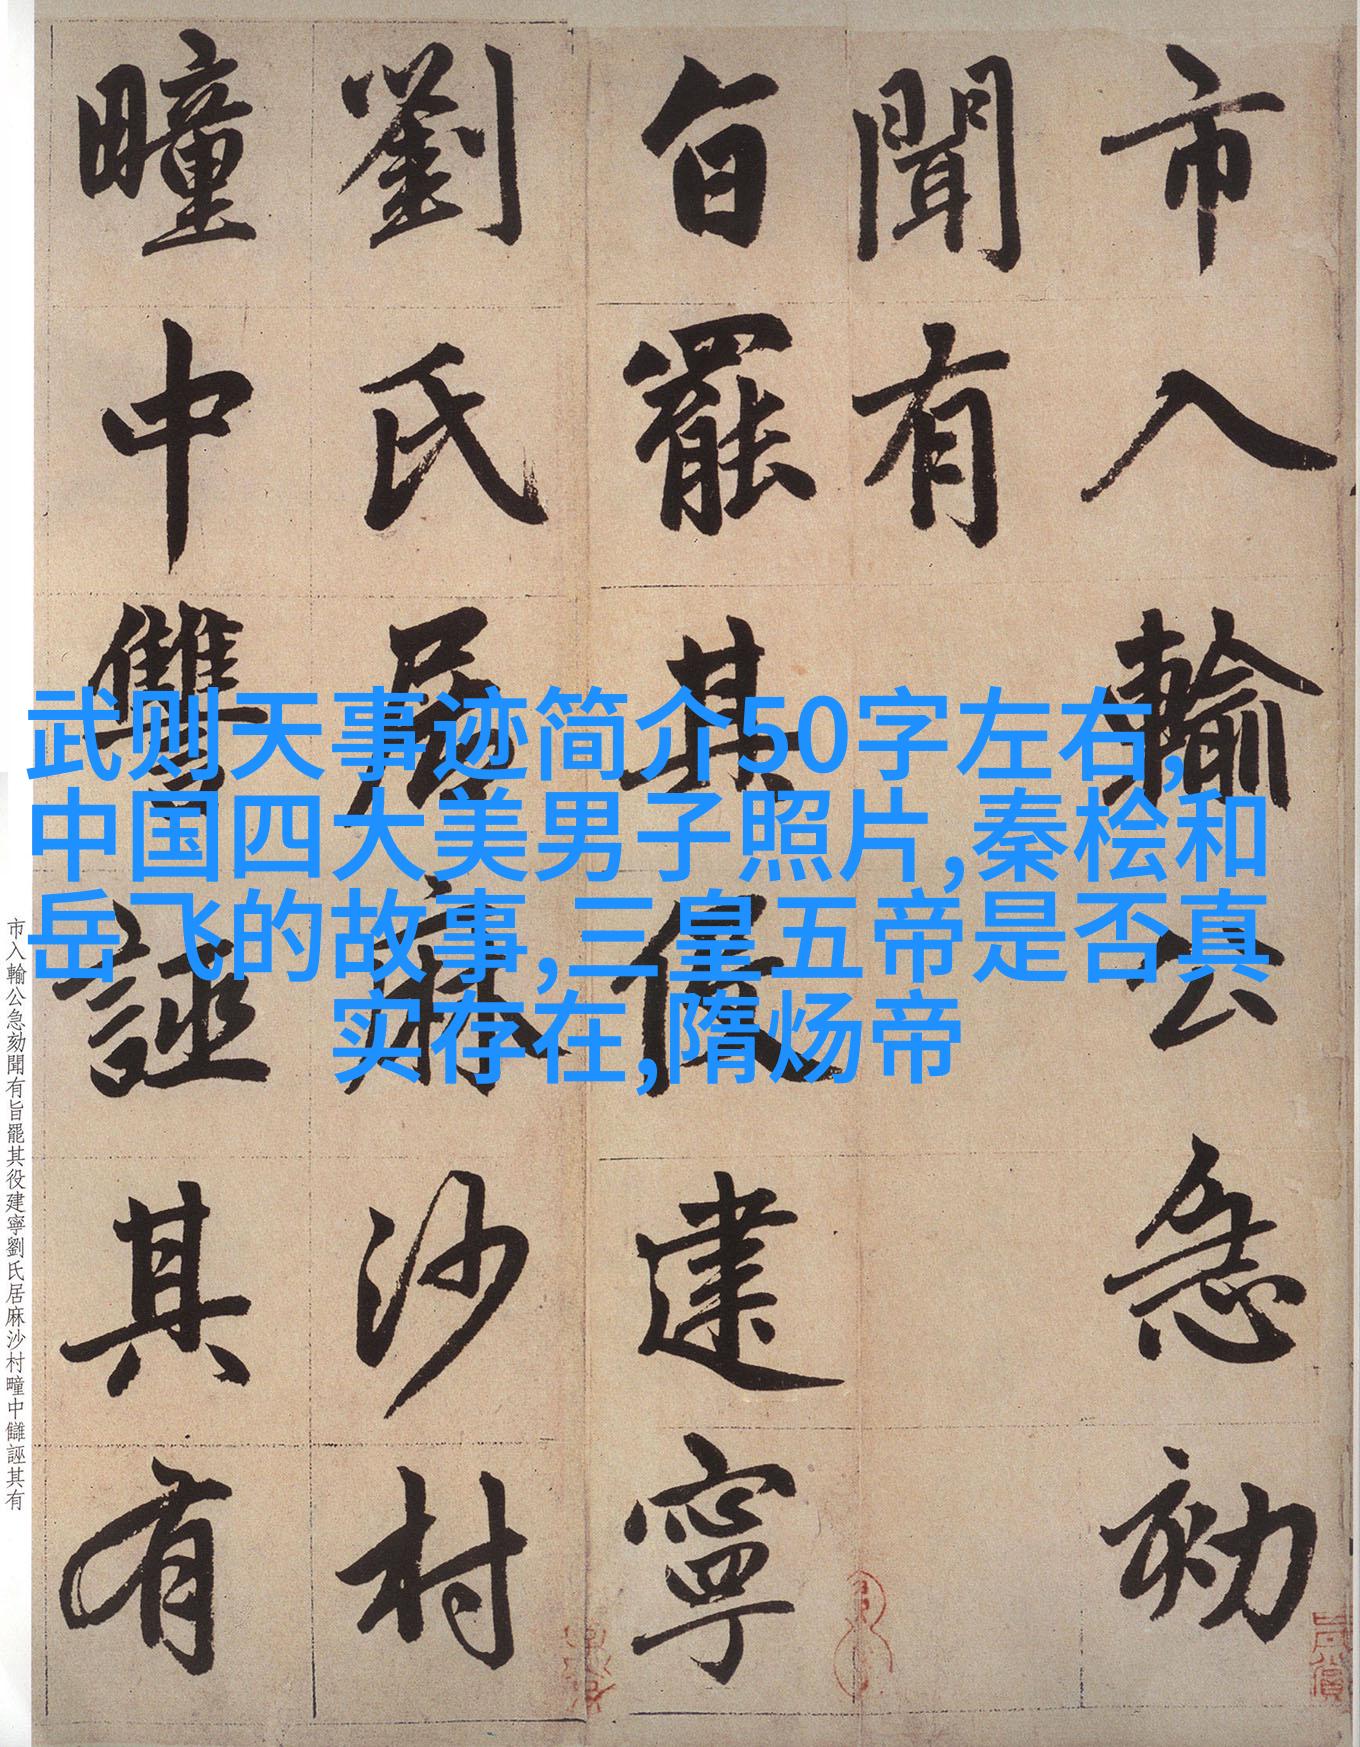 市入輸公急劾
聞有
旨罷其役建寧
劉氏居麻沙村
疃中雙誣其有
武则天事迹简介50字左右,
中国四大美男子照片,秦桧和
岳飞的故事,三皇五帝是否真
实存在,隋炀帝
市入輸公急劾聞有旨罷其役建寧劉氏居麻沙村疃中讎誣其有